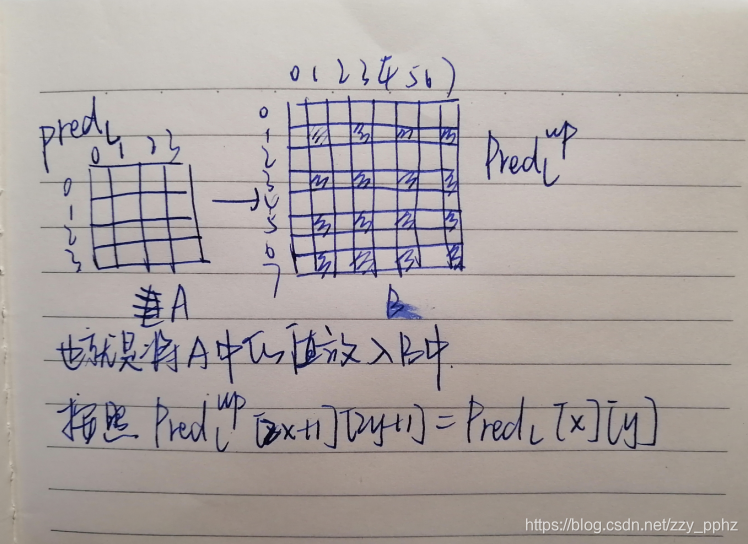 0 1 2 3 4 5 6 7
pred_L
0 1 2 3
0
1
2
3
0
1
2
3
4
5
6
7
Pred_L^up
A
B
也就是将A中的值放入B中.
按照 Pred_L^up [2x+1][2y+1] = Pred_L [x][y]
https://blog.csdn.net/zzy_pphz